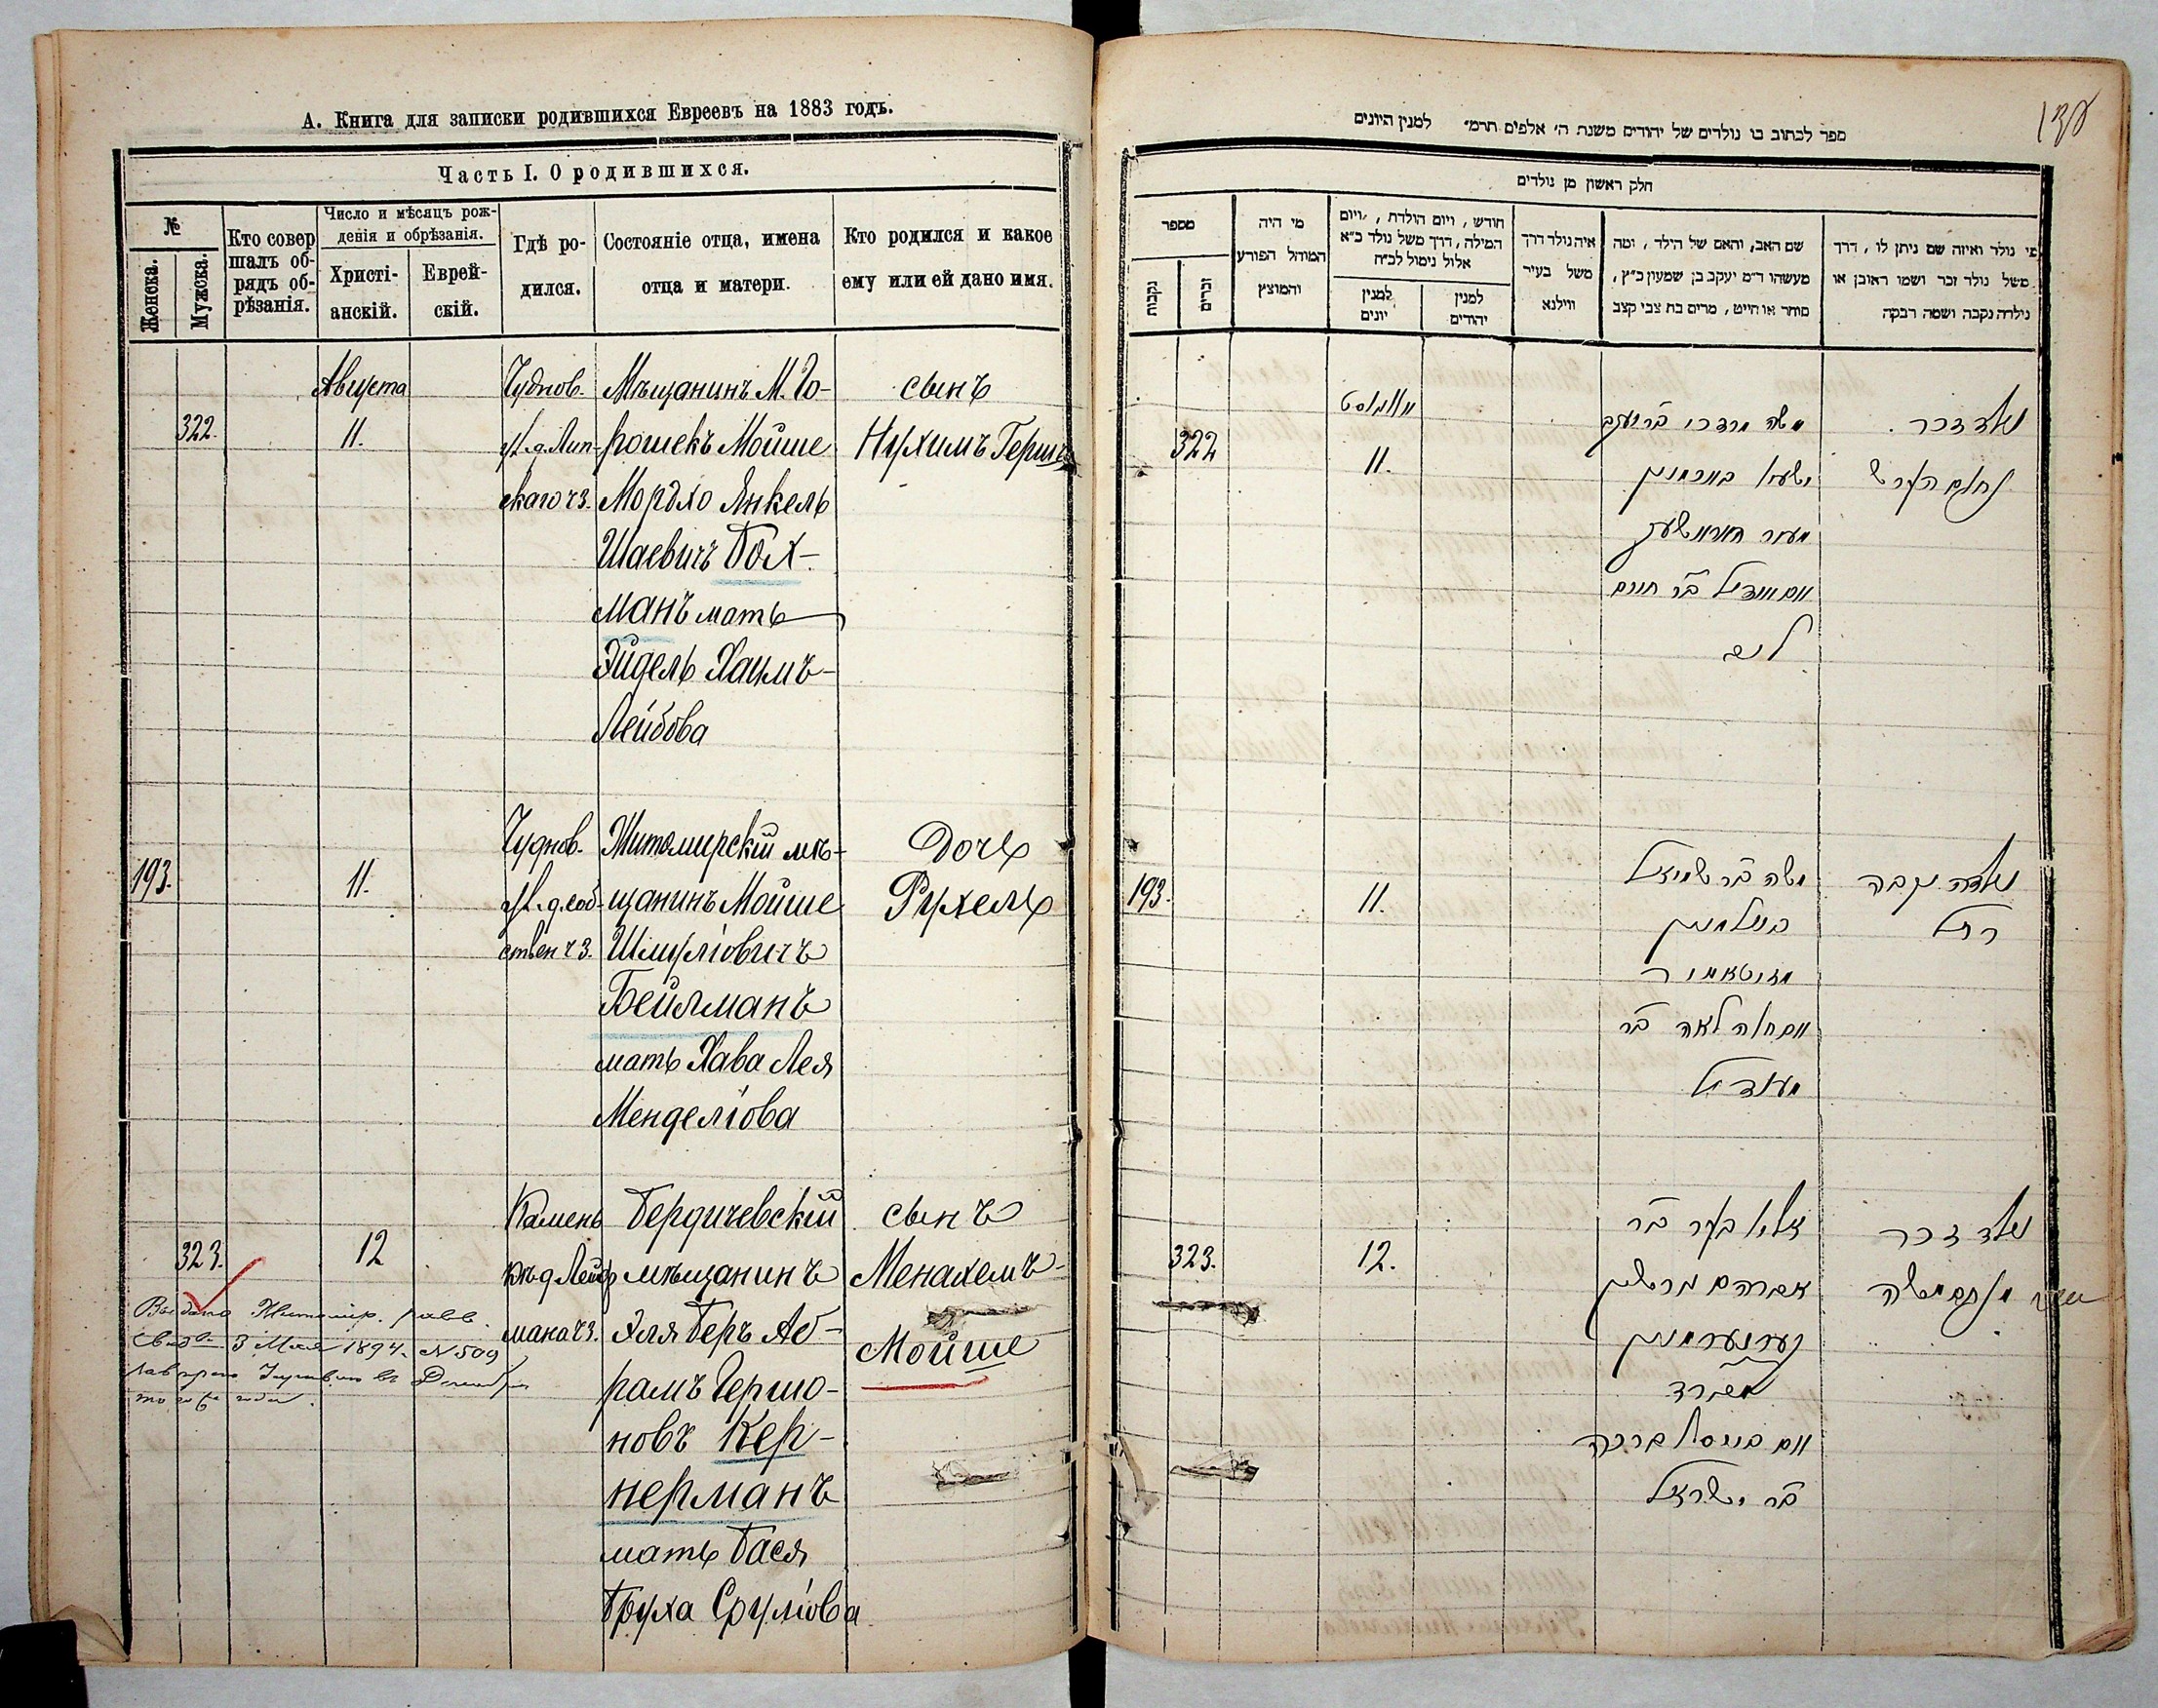 А. Книга для записки родившихся Евреевъ на 1883 годъ.
Часть I. О родившихся.
№
Женска.
Мужска.
Кто совер
шалъ об-
рядъ об-
рѣзанія.
Число и мѣсяцъ рож-
денія и обрѣзанія.
Христі-
анскій.
Еврей-
скій.
Гдѣ ро-
дился.
Состояніе отца, имена
отца и матери.
Кто родился и какое
ему или ей дано имя.
322.
Августа
11.
Чуднов.
ул. д. Лип-
скаго ч3.
Мѣщанинъ М. Го-
рошекъ Мойше
Мордхо Янкель
Шаевичъ Бох-
манъ мать
Эйдель Хаимъ-
Лейбова
сынъ
Нухимъ Гершъ
193.
11.
Чуднов.
ул. д. соб-
ствен ч3.
Житомирскій мѣ-
щанинъ Мойше
Шмуліовичъ
Бейлманъ
мать Хава Лея
Менделіова
Дочь
Рухель
323.
12
Камень
къ д Лейф
мана ч3.
Бердичевскій
мѣщанинъ
Эля Беръ Аб-
рамъ Гершо-
новъ Кер-
нерманъ
мать Бася
Бруха Cруліова
сынъ
Менахемъ-
Мойше
Выдано Житомір. равв.
3 Мая 1894. N 509
ספר לכתוב בו נולדים של יהודים משנת ה׳ אלפים תרמ״ למנין היונים
חלק ראשון מן נולדים
מספר
נקבות
זכרים
מי היה
המוהל הפורע
והמוצץ
חודש, ויום הולדת, ויום
המילה, דרך משל נולד כ״א
אלול נימול לכ״ח
למנין
יונים
למנין
יהודים
איה נולד דרך
משל בעיר
ווילנא
שם האב, והאם של הילד, ומה
מעשהו ד״מ יעקב בן שמעון כ״ץ,
סוחר או חייט, מרים בת צבי קצב
מי נולד ואיזה שם ניתן לו, דרך
משל נולד זכר ושמו ראובן או
נולדה נקבה ושמה רבקה
322
אווגוסט
11.
משה מרדכי בר יעקב
ישעיו באכמאן
ואם איידיל בר חיים
ליב
נולד זכר
נחום הערש
193.
11.
משה בר שמואל
ביילמאן
זיטאמיר
ואם חוה לאה בר
מענדיל
נולדה נקבה
רחל
323.
12.
אליו בער בר
אברהם גרשון
קערנערמאן
ואם באסי ברכה
בר ישראל
נולד זכר
מנחם משה